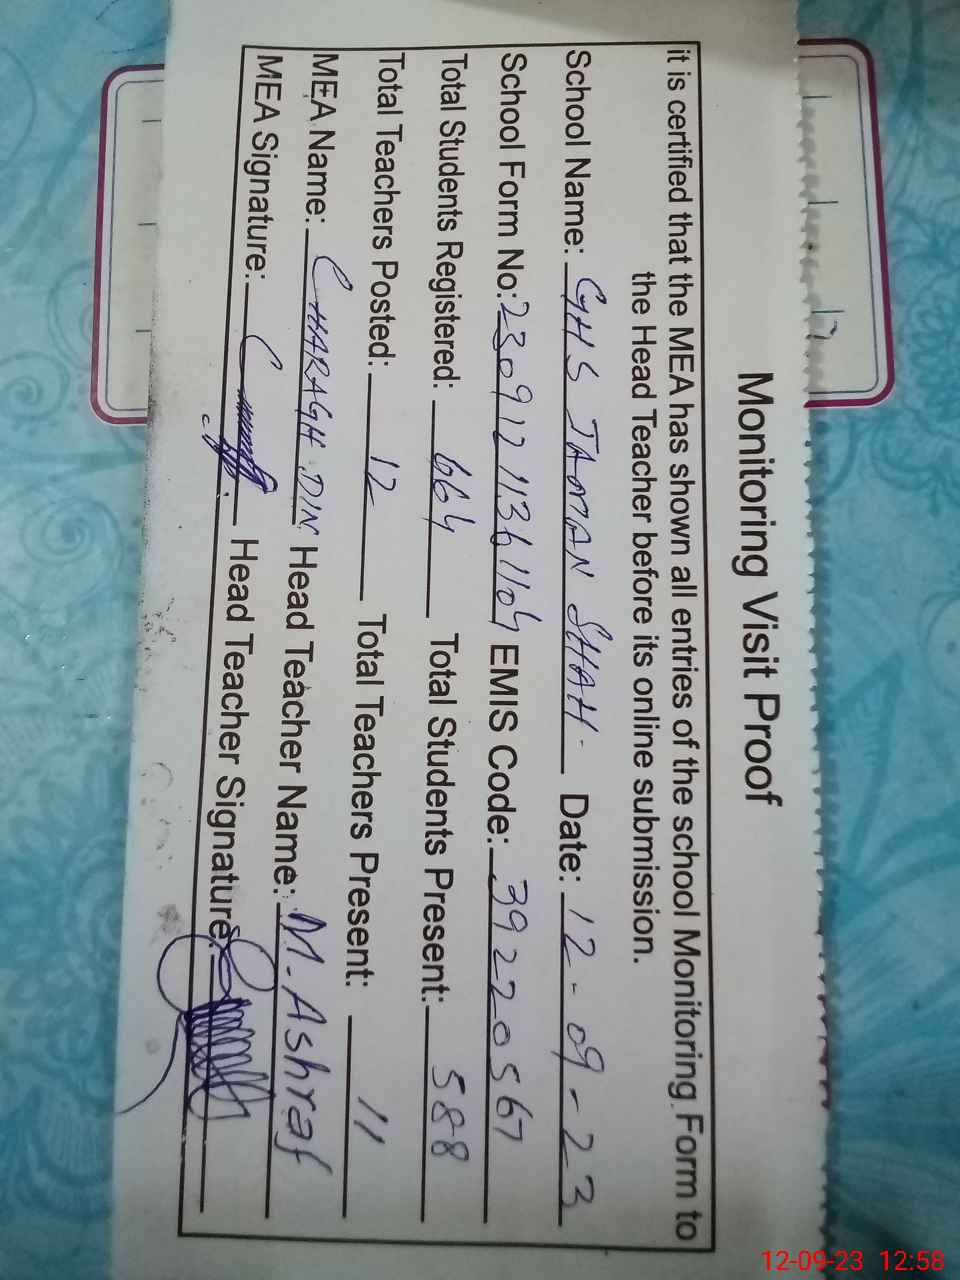 Monitoring Visit Proof
it is certified that the MEA has shown all entries of the school Monitoring Form to
the Head Teacher before its online submission.
School Name: GHS JAMAN SHAH. Date: 12-09-23
School Form No: 23091211361104 EMIS Code: 39220567
Total Students Registered: 664 Total Students Present: 588
Total Teachers Posted: 12 Total Teachers Present: 11
MEA Name: CHARAGH DIN Head Teacher Name: M. Ashraf
MEA Signature: Head Teacher Signature:
12-09-23 12:58